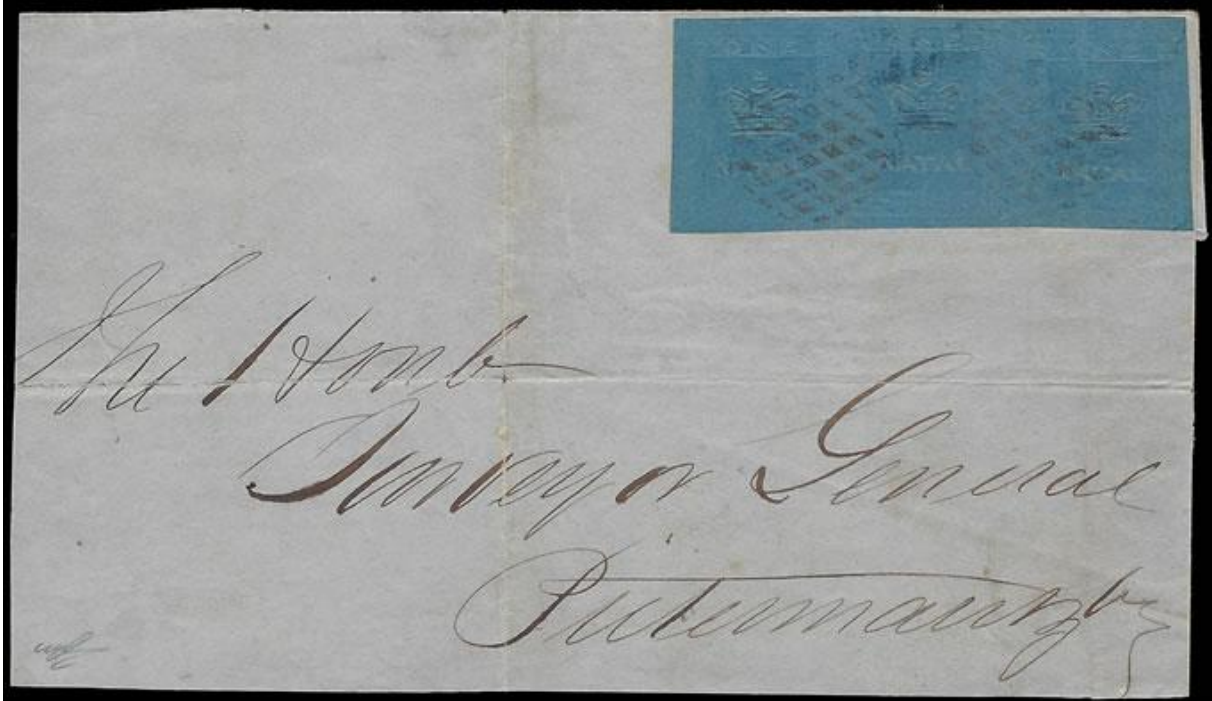 ONE
NATAL
The Honb
Surveyor General
Pietermaritzbg